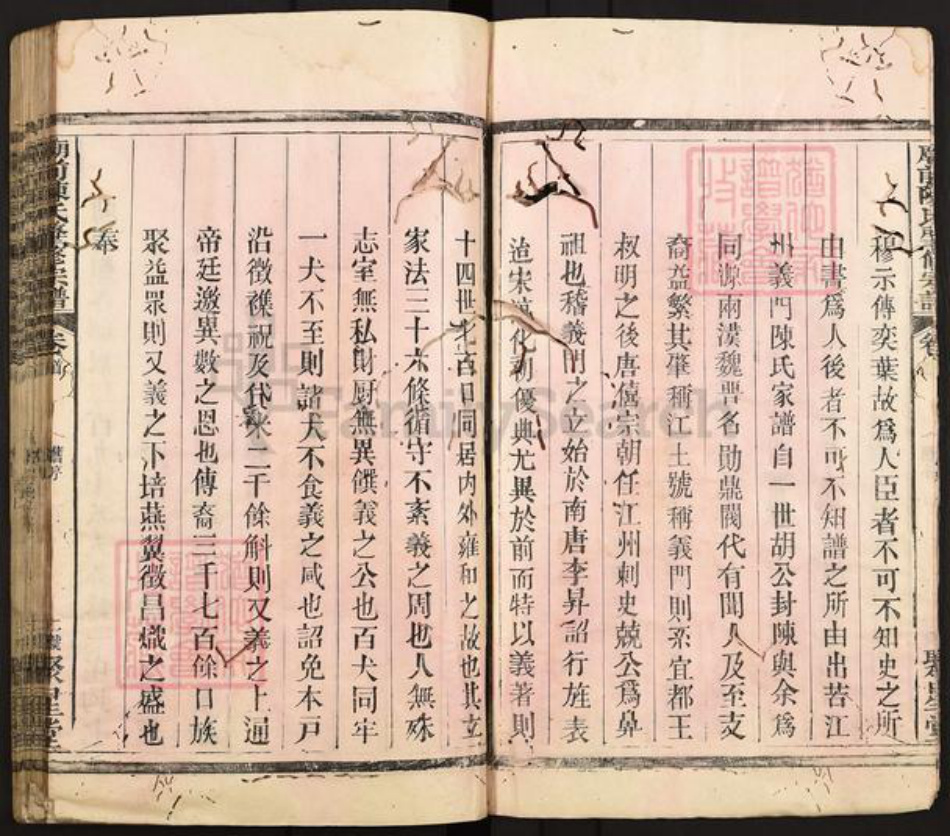 穆示傳奕葉故為人臣者不可不知史之所
由書為人後者不可不知譜之所由出苦江
州義門陳氏家譜自一世胡公封陳與余為
同源兩漢魏晉名勛鼎閥代有聞人及至支
裔益繁其肇稱江土號稱義門則系宜都王
叔明之後唐僖宗朝任江州刺史兢公為鼻
祖也稽義門之立始於南唐李昇詔行旌表
迨宋 化朝優典尤異於前而特以義著則
十四世 七百口同居內外雍和之故也其立
家法三十六條循守不紊義之周也人無殊
志室無私財厨無異饌義之公也百犬同牢
一犬不至則諸犬不食義之咸也詔免本戸
沿徵襍祝及代 米二千餘斛則又義之上通
帝廷邀異數之恩也傳裔三千七百餘口族
聚益眾則又義之下培燕翼徵昌熾之盛也
奉
廟前陳氏 修宗譜
卷首
舊序
聚星堂
FamilySearch